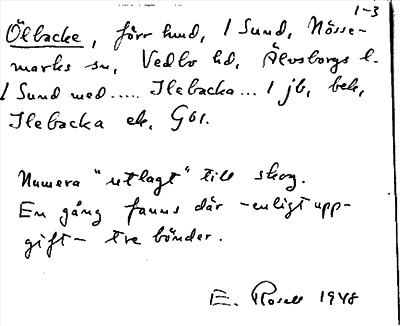 1-3
Ölbacke, förr hmd, / Sund, Nösse-
marks sn, Vedbo hd, Älvsborgs l.
/ Sund med ..... Ilebacka ... / jb, bek,
Ilebacka ek, G61.
Numera "utlagt" till skog.
En gång fanns där -enligt upp-
gift- tre bönder.
E. Rosell 1948